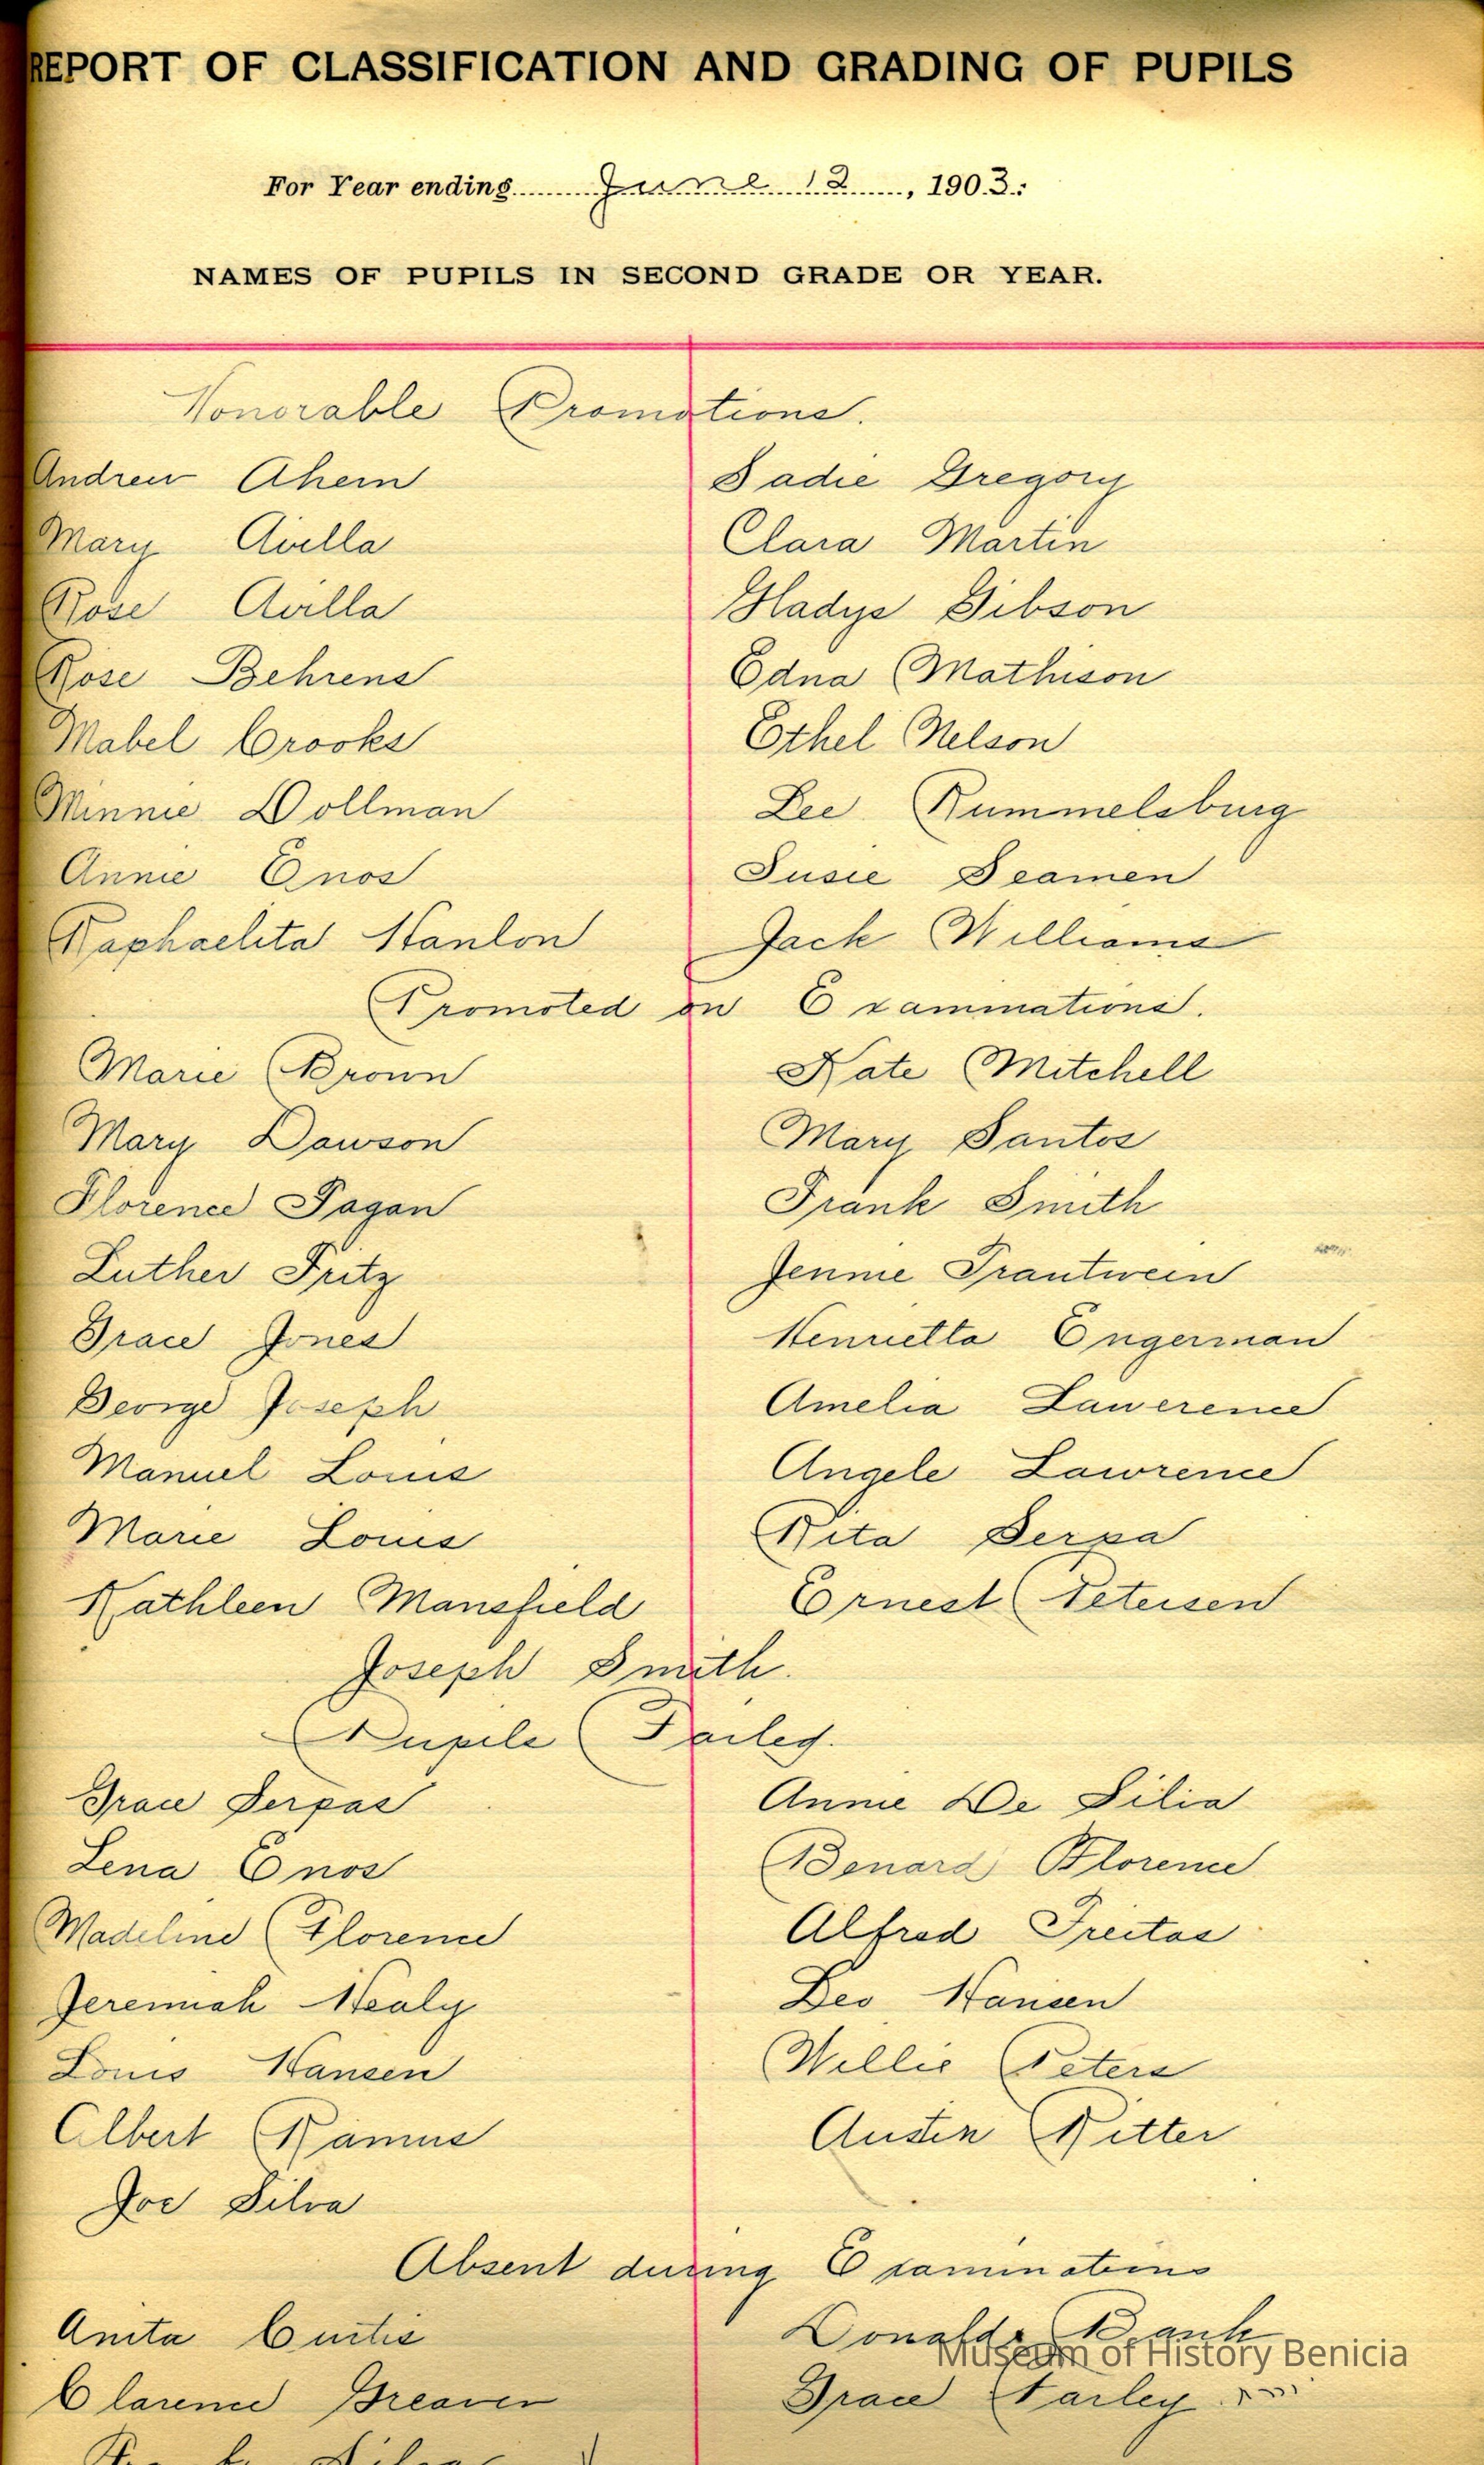 REPORT OF CLASSIFICATION AND GRADING OF PUPILS
For Year ending June 12, 1903.
NAMES OF PUPILS IN SECOND GRADE OR YEAR.
Honorable Promotions.
Andrew Ahern Sadie Gregory
Mary Avilla Clara Martin
Rose Avilla Gladys Gibson
Rose Behrens Edna Mathison
Mabel Crooks Ethel Nelson
Minnie Dollman Lee Rummelsburg
Annie Enos Susie Seamen
Raphaelita Hanlon Jack Williams
Promoted on Examinations.
Marie Brown Kate Mitchell
Mary Dawson Mary Santos
Florence Fagan Frank Smith
Luther Fritz Jennie Trantwein
Grace Jones Henrietta Engerman
George Joseph Amelia Lawerence
Manuel Louis Angele Lawrence
Marie Louis Rita Serpa
Kathleen Mansfield Ernest Petersen
Joseph Smith.
Pupils Failed.
Grace Serpas Annie De Silia
Lena Enos Benard Florence
Madeline Florence Alfred Freitas
Jeremiah Healy Leo Hansen
Louis Hansen Willie Peters
Albert Ramus Austin Ritter
Joe Silva
Absent during Examinations
Anita Curtis Donald Bank
Clarence Greaver Grace Farley
Museum of History Benicia